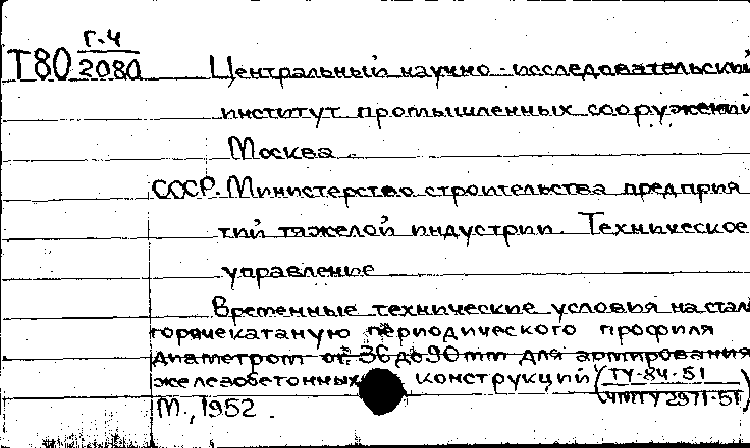 Т80 Г.4/2080
Центральный научно-исследовательский
институт промышленных сооружений
Москва.
СССР. Министерство строительства предприя
тий тяжелой индустрии. Техническое
управление
Временные технические условия на сталь
горячекатаную периодического профиля
диаметром от 36 до 90 mm для армирования
железобетонных конструкций (ТУ-84-51/ЧМТУ 2971-51)
М., 1952.